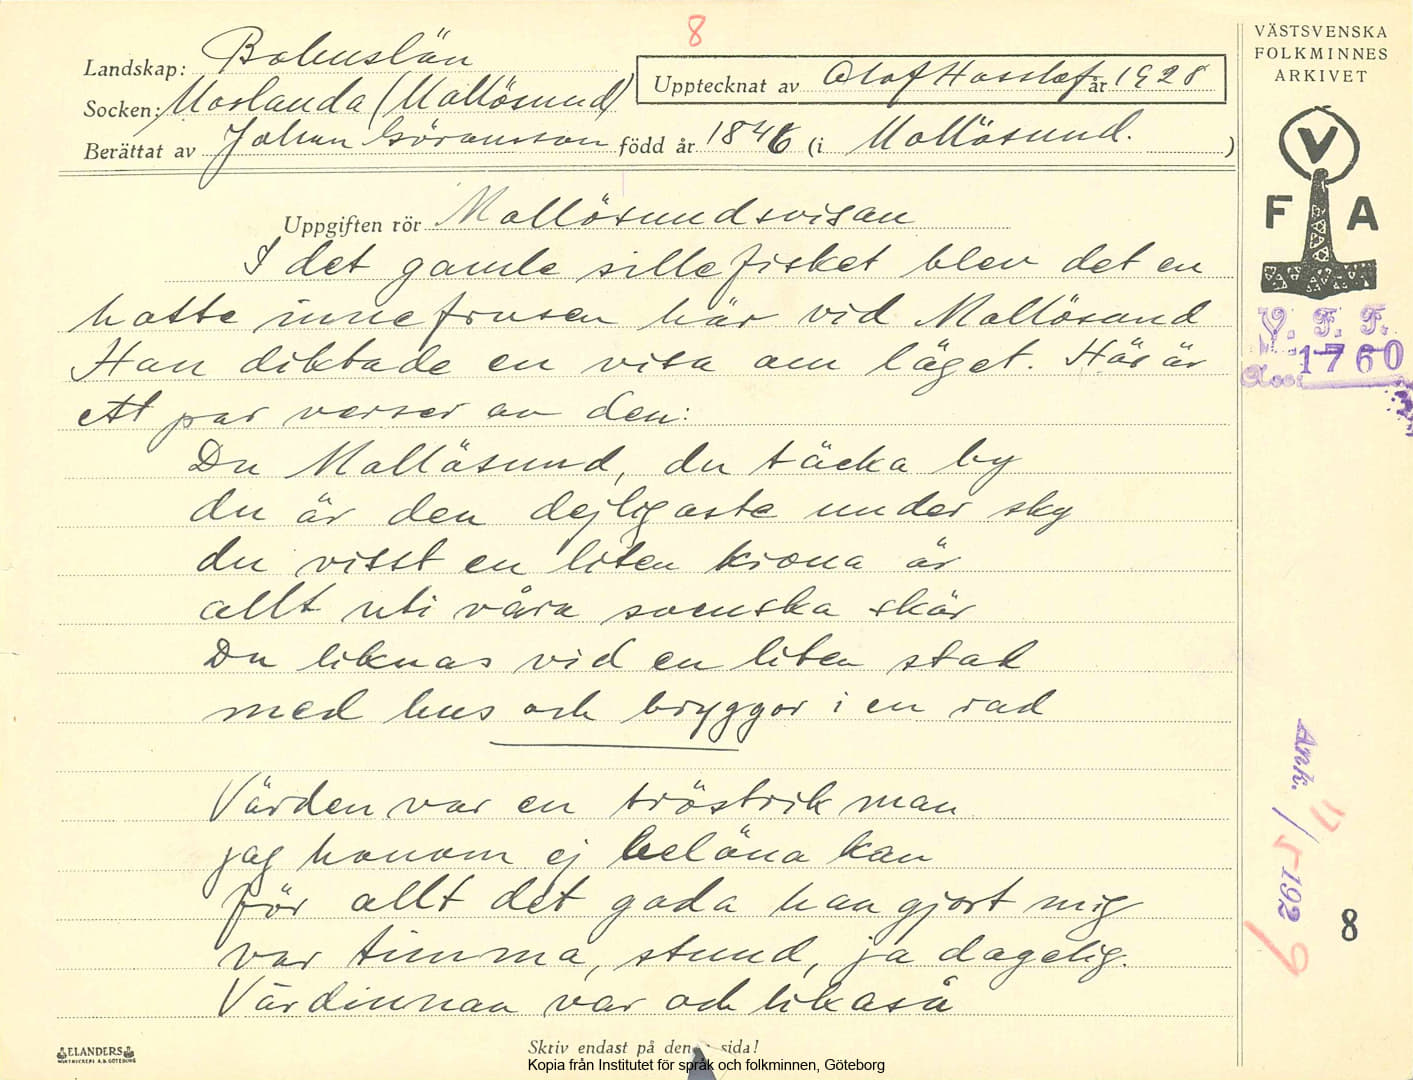 8
Landskap: Bohuslän
Socken: Morlanda (Mollösund)
Upptecknat av Olof Hasslöf år 1928
Berättat av Johan Göransson född år 1846 (i Mollösund. )
Uppgiften rör Mollösundsvisan
I det gamle sillefisket blev det en
hatte innefrusen här vid Mollösund
Han diktade en visa om läget. Här är
ett par verser av den:
Du Mollösund, du täcka by
du är den dejligaste under sky
du visst en liten krona är
allt uti våra svenska skär
Du liknas vid en liten stad
med hus och bryggor i en rad
Värden var en tröstrik man
jag honom ej belöna kan
för allt det goda han gjort mig
var timma, stund, ja dagelig.
Värdinnan var och likaså
VÄSTSVENSKA
FOLKMINNES
ARKIVET
V
F A
V. F. F.
Acc. 1760
Ank. 11/5-1929
8
ELANDERS
BOKTRYCKERI A.B. GÖTEBORG
Skriv endast på denna sida!
Kopia från Institutet för språk och folkminnen, Göteborg